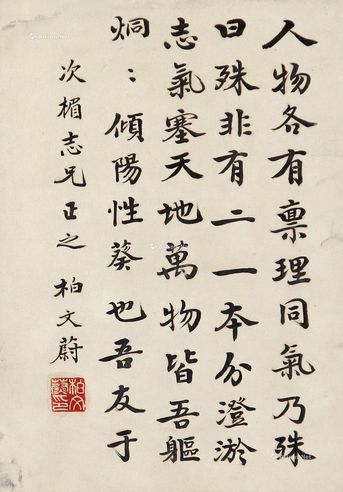 人物各有禀理同氣乃殊
曰殊非有二一本分澄淤
志氣塞天地萬物皆吾軀
炯：傾陽性葵也吾友于
次楣志兄正之 柏文蔚
柏文蔚印